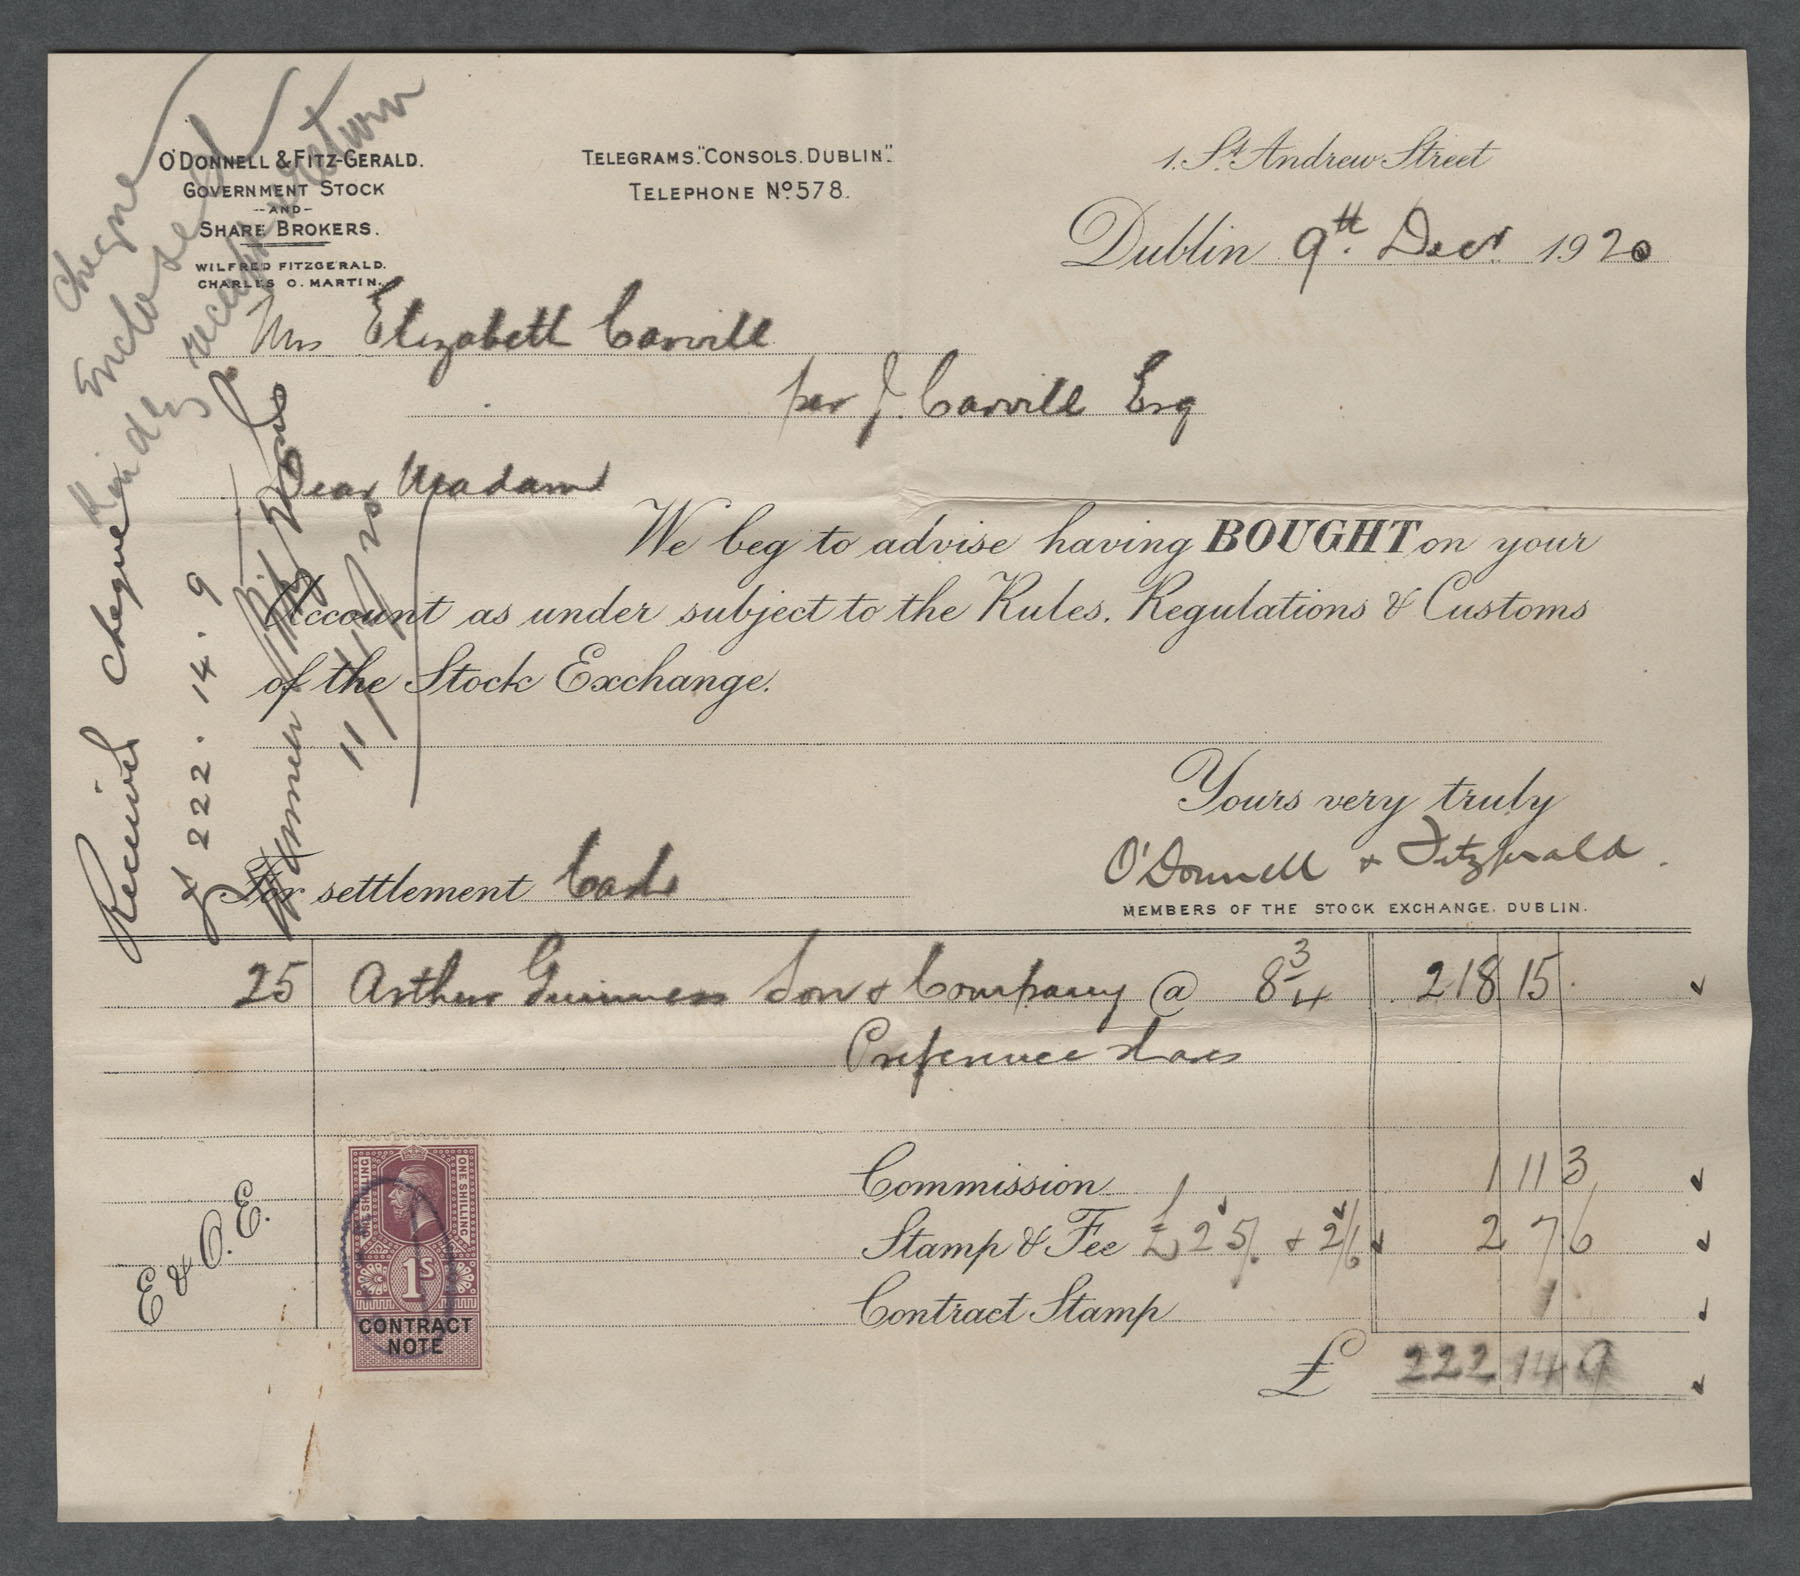 O'DONNELL & FITZ-GERALD.
GOVERNMENT STOCK
-AND-
SHARE BROKERS.
WILFRED FITZGERALD.
CHARLES O. MARTIN.
TELEGRAMS: "CONSOLS. DUBLIN".
TELEPHONE No. 578.
1. St. Andrew Street
Dublin 9th. Decr 1920
Cheque
Enclosed
Kindly receipt & return
Mrs Elizabeth Carvill
per J. Carvill Esq
Dear Madam
We beg to advise having BOUGHT on your
Account as under subject to the Rules, Regulations & Customs
of the Stock Exchange.
Received Cheque
£ 222. 14. 9
11/12/20
Yours very truly
O'Donnell & Fitzgerald.
MEMBERS OF THE STOCK EXCHANGE. DUBLIN.
For settlement Cash
25 Arthur Guinness Son & Company @ 8 3/4 218 15 .
Preference shares
Commission 1 11 3
Stamp & Fee £2 5/. + 2/6 2 7 6
Contract Stamp 1
£ 222 14 9
E & O. E.
ONE SHILLING
ONE SHILLING
1S
CONTRACT
NOTE